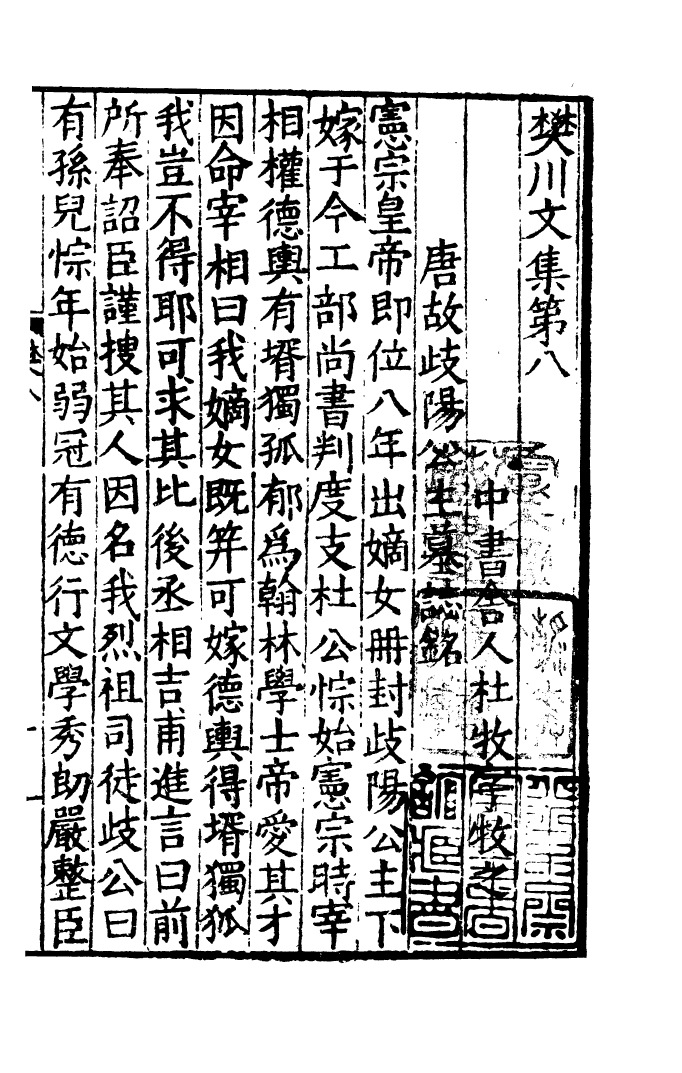 樊川文集第八
中書舍人杜牧字牧之
唐故歧陽公主墓誌銘
憲宗皇帝即位八年出嫡女冊封歧陽公主下
嫁于今工部尚書判度支杜公悰始憲宗時宰
相權德輿有壻獨孤郁爲翰林學士帝愛其才
因命宰相曰我嫡女既笄可嫁德輿得壻獨孤
我豈不得耶可求其比後丞相吉甫進言曰前
所奉詔臣謹搜其人因名我烈祖司徒歧公曰
有孫兒悰年始弱冠有德行文學秀朗嚴整臣